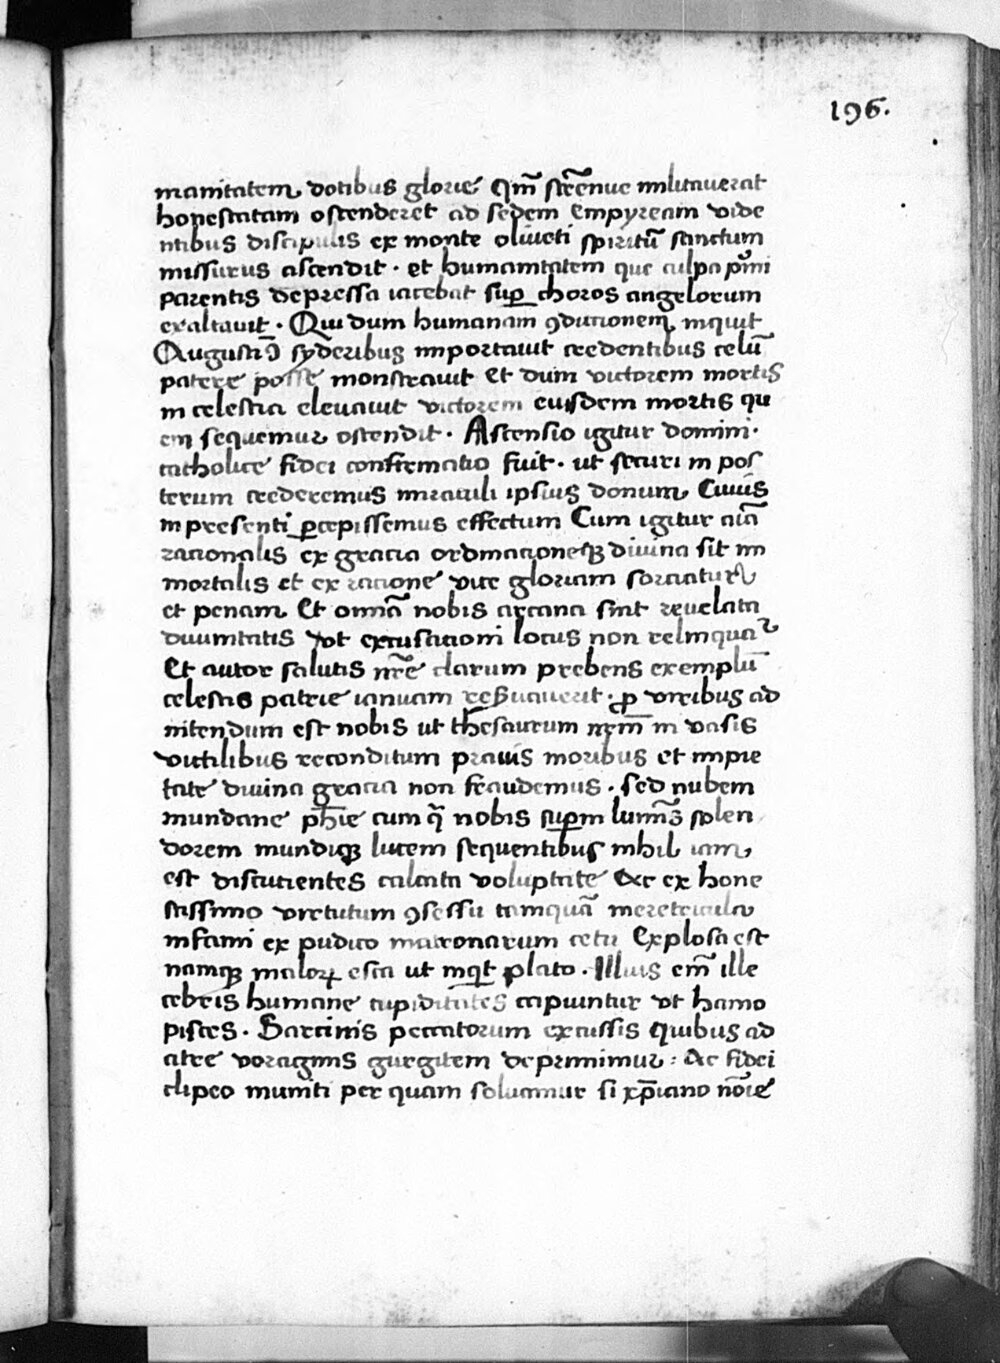 196.
manitatem dotibus glorie Qm̃ strẽnue militauerat
honestatam ostenderet ad sedem empyream vide
ntibus discipulis ex monte oliueti spiritũ sanctum
missurus ascendit · et humanitatem que culpa pͥmi
parentis depressa iacebat suꝑ choros angelorum
exaltauit · Qui dum humanam ꝯditionem inquit
Augustiꝰ syderibus importauit credentibus celũ
patere posse monstrauit Et dum victorem mortis
in celestia eleuauit victorem eiusdem mortis qu
em sequemur ostendit · Ascensio igitur domini ·
catholice fidei confirmatio fuit · ut securi in pos
terum crederemus miraculi ipsius donum Cuius
in presenti ꝑcepissemus effectum Cum igitur aĩa
racionalis ex gracia ordinacioneqꝫ diuina sit im
mortalis et ex racione vite gloriam sorciatur
et penam Et omĩa nobis arcana sint reuelata
diuinitatis Vt excusacioni locus non relinquať
Et autor salutis nr̃e clarum prebens exemplũ
celestis patrie ianuam reserauerit · ꝓ viribus ad
nitendum est nobis ut thesaurum nrm̃ in vasis
victilibus reconditum prauis moribus et impie
tate diuina gracia non fraudemus · sed nubem
mundane ph̃ie cum qͣ nobis suꝑni lumĩs splen
dorem mundiqꝫ lucem sequentibus nihil iam
est discutientes calcata voluptate Ac ex hone
stissimo virtutum ꝯsessu tamquã meretricula
infami ex pudico matronarum cetu Explosa est
namqꝫ maloꝝ esca ut inqͥt plato · Illius em̃ ille
cebris humane cupiditates capiuntur vt hamo
pisces · Sarcinis peccatorum excussis quibus ad
atre voraginis gurgitem deprimimur : Ac fidei
clipeo muniti per quam soluimur si xp̃iano nõie